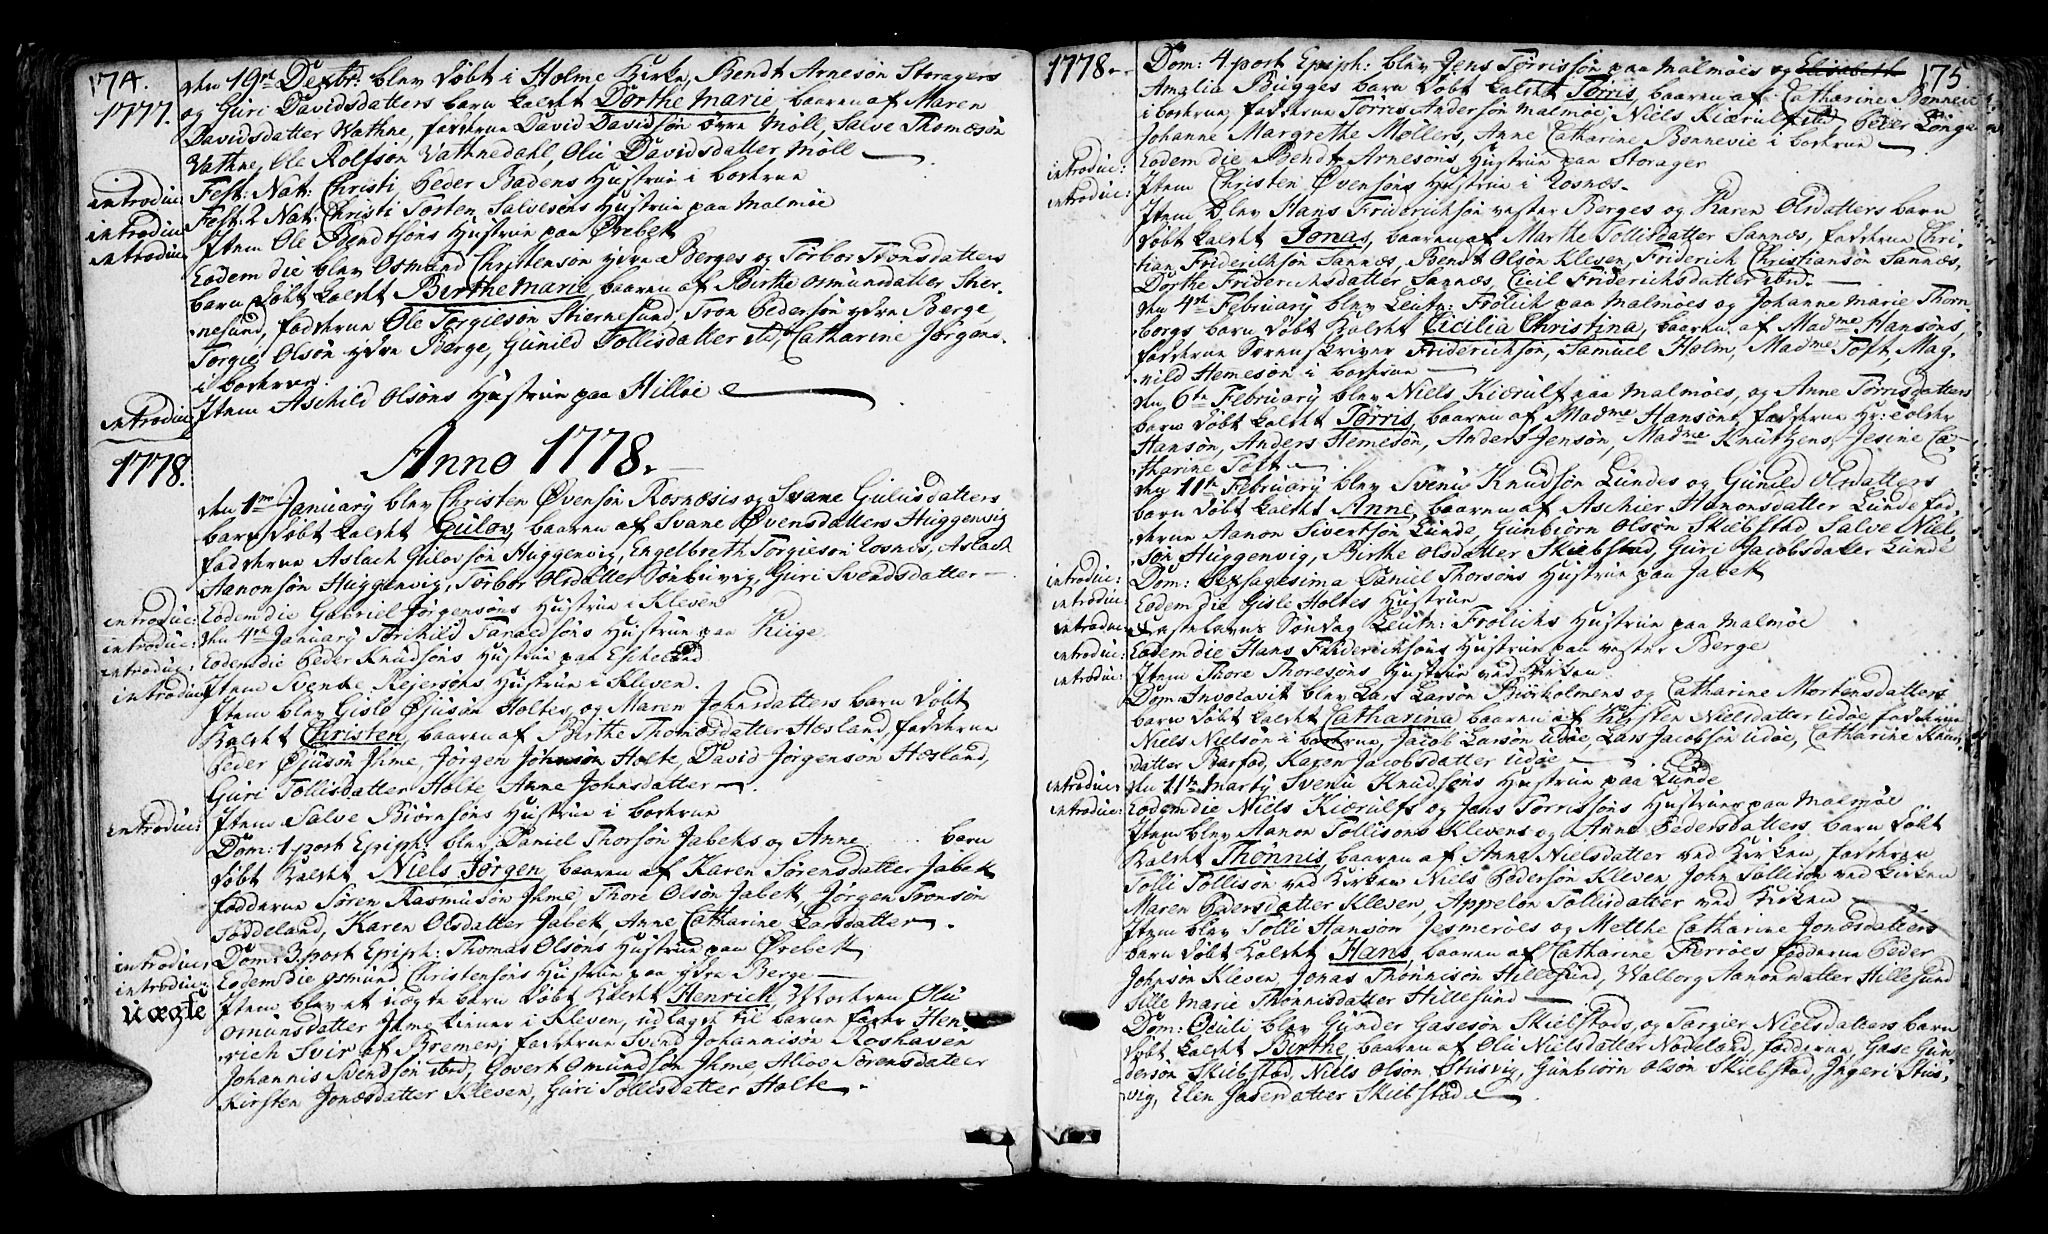 174.
1777.
den 19de Dexbr: blev døbt i Holme Kirke, Bendt Arnesøn Storagers
og Guri Davidsdatters barn kaldet Dorthe Marie, baaren af Maren
Davidsdatter Vathne, fadderne David Davidsøn øvre Møll, Salve Thomæsøn
Vathne, Ole Rolfsøn Vathnedahl, Olu Davidsdatter Møll
introduc: Fest: Nat: Christi, Peder Badens Hustrue i
introduc: Fest: 2 Nat: Christi Torten Salvesens Hustrue paa Malmøe
introduc: Item Ole Bendtsøns Hustrue paa Øvebek
Eodem die blev Osmund Christensøn ydre Berges og Torbor Tronsdatters
barn døbt kaldet Berthe Marie, baaren af Birthe Osmundsdatter Sker-
nesund, fadderne Ole Torgiesøn Skiernesund, Tron Pedersøn ydre Berge,
Torgie Olsøn ydre Berge, Gunild Tollisdatter ibd, Catharine Jørgens.
i
introduc: Item Aschild Olsøns Hustrue paa Hilløe
Anno 1778.
1778.
den 1me January blev Christen Øvensøn Rosnæsis og Svane Gulusdatters
barn døbt kaldet Gulov, baaren af Svane Øvensdatters Huggenvig
fadderne Aslach Gulovsøn Huggenvig, Engelbreth Torgiesøn Rosnes, Aslach
Aanonsøn Huggenvig, Torbor Olsdatter Sønbuvig, Guri Svendsdatter
introduc: Eodem die Gabriel Jørgensøns Hustrue i Kleven
introduc: den 4de January Torchild Taraldsøns Hustrue paa Kiige.
introduc: Eodem die Peder Knudsøns Hustrue paa Eskeland
introduc: Item Svenke Reiersøns Hustrue i Kleven.
Item blev Gisle Øjusøn Holtes, og Maren Johnsdatters barn døbt
kaldet Christen, baaren af Birthe Thomæsdatter Hesland, fadderne
Peder Øjusøn Ihme, Jørgen Johnsøn Holte, David Jørgensøn Hesland,
Guri Tollisdatter Holte Anne Johnsdatter
introduc: Item Salve Biørnsøns Hustrue i
Dom: 1 post Epiph: blev Daniel Thorsøn Jabeks og Anne barn
døbt kaldet Niels Jørgen, baaren af Karen Sørensdatter Jabek
fadderne Søren Rasmusøn Ihme, Thore Olsøn Jabek, Jørgen Tronsøn
Toddeland, Karen Olsdatter Jabek, Anne Catharine Larsdatter
introduc: Dom: 3 post Epiph: Thomas Olsøns Hustrue paa Øvebek
introduc: Eodem die Osmund Christensøns Hustrue paa ydre Berge
uægte Item blev et uægte barn døbt kaldet Henrich, Moderen Olu
Omunsdatter Ihme tiener i Kleven, udlagt til barne fader Hen-
rich Svir af Bremen; fadderne Svend Johannisøn Roshaven
Johannis Svendsøn ibd, Govert Omundsøn Ihme, Alis Sørensdatter
Kirsten Jonæsdatter Kleven, Guri Tollisdatter Holte
175
1778
Dom: 4 post Epiph: blev Jens Tørrissøn paa Malmøes og Elisabeth
Amalia Bugges barn døbt kaldet Tørris, baaren af Catharine Bonnevie
i fadderne Tørris Andersøn Malmøe, Niels Kiærulf ibd, Peder Longe
Johanne Margrethe Møllers, Anne Catharine Bonnevie i
introduc: Eodem die Bendt Arnesøns Hustrue paa Storager
introduc: Item Christen Øvensøns Hustrue i Rosnæs.
Item blev Hans Friderichsøn vester Berges og Karen Olsdatters barn
døbt kaldet Jonas, baaren af Marthe Tollisdatter Sannæs, fadderne Chri-
stian Friderichsøn Sannæs, Bendt Olsøn Kleven, Friderich Christiansøn Sannæs,
Dorthe Friderichsdatter Sannæs, Cicil Friderichsdatter ibd.
den 4de February blev Leutn: Frolich paa Malmøes og Johanne Marie Thorn-
borgs barn døbt kaldet Cicilia Christina, baaren af Madme Hansøns,
fadderne Sorenskriver Friderichsøn, Samuel Holm, Madme Toft, Mag-
nild Hemesøn i
den 6te February blev Niels Kiærulf paa Malmøes, og Anne Tørrisdatters
barn døbt kaldet Tørris, baaren af Madme Hansøn, fadderne Hr: Tolder
Hansøn, Anders Hemesøn, Anders Jensøn, Madme Knutzens, Jesine Ca-
tharine Toft
den 11te February blev Svenu Knudsøn Lundes og Gunild Olsdatters
barn døbt kaldet Anne, baaren af Aschier Hanonsdatter Lunde fad-
derne Aanon Sivertsøn Lunde, Gunbiørn Olsøn Skiebstad Salve Niel-
søn Huggenvig, Birthe Olsdatter Skiebstad, Guri Jacobsdatter Lunde
introduc: Dom: Sexagesima Daniel Thorsøns Hustrue paa Jabek
introduc: Eodem die Gisle Holtes Hustrue
introduc: Fastelavns Søndag Leutn: Frolichs Hustrue paa Malmøe
introduc: Eodem die Hans Friderichsøns Hustrue paa vester Berge
introduc: Item Thore Thoresøns Hustrue ved Kirken
Dom: Invocavit blev Lars Larsøn Biørkolmens og Catharine Mortensdatters
barn døbt kaldet Catharina baaren af Kirsten Nielsdatter Udøe, fadderne
Niels Nielsøn i Jacob Larsøn Udøe, Lars Jacobsøn Udøe, Catharine Knud-
datter Barfod, Karen Jacobsdatter Udøe
introduc: den 11te Marty Svenu Knudsøns Hustrue paa Lunde
introduc: Eodem die Niels Kiærulfs og Jens Tørrissøns Hustruer paa Malmøe
Item blev Aanon Tollisøns Klevens og Anne Pedersdatters barn døbt
kaldet Thønnis, baaren af Anne Nielsdatter ved Kirken, fadderne
Tolli Tollisøn ved Kirken Niels Pedersøn Kleven John Tollisøn ved Kirken
Maren Pedersdatter Kleven, Appelon Tollisdatter ved Kirken
Item blev Tolli Hansøn Jesmerøes og Metthe Catharine Jonæsdatters
barn døbt kaldet Hans, baaren af Catharine Ferrøes fadderne Peder
Johnsøn Kleven, Jonas Thønnisøn Hillesund, Walborg Aanonsdatter Hillesund
Sille Marie Thønnisdatter Hillesund
Dom: Oculi blev Gunder Gasesøn Skiebstads, og Torgier Nielsdatters barn
døbt kaldet Birthe, baaren af Olu Nielsdatter Nodeland, fadderne, Gase Gun-
dersøn Skiebstad, Niels Olsøn Stusvig, Gunbiørn Olsøn Skiebstad, Ingeri Stus-
vig, Elen Gasesdatter Skiebstad